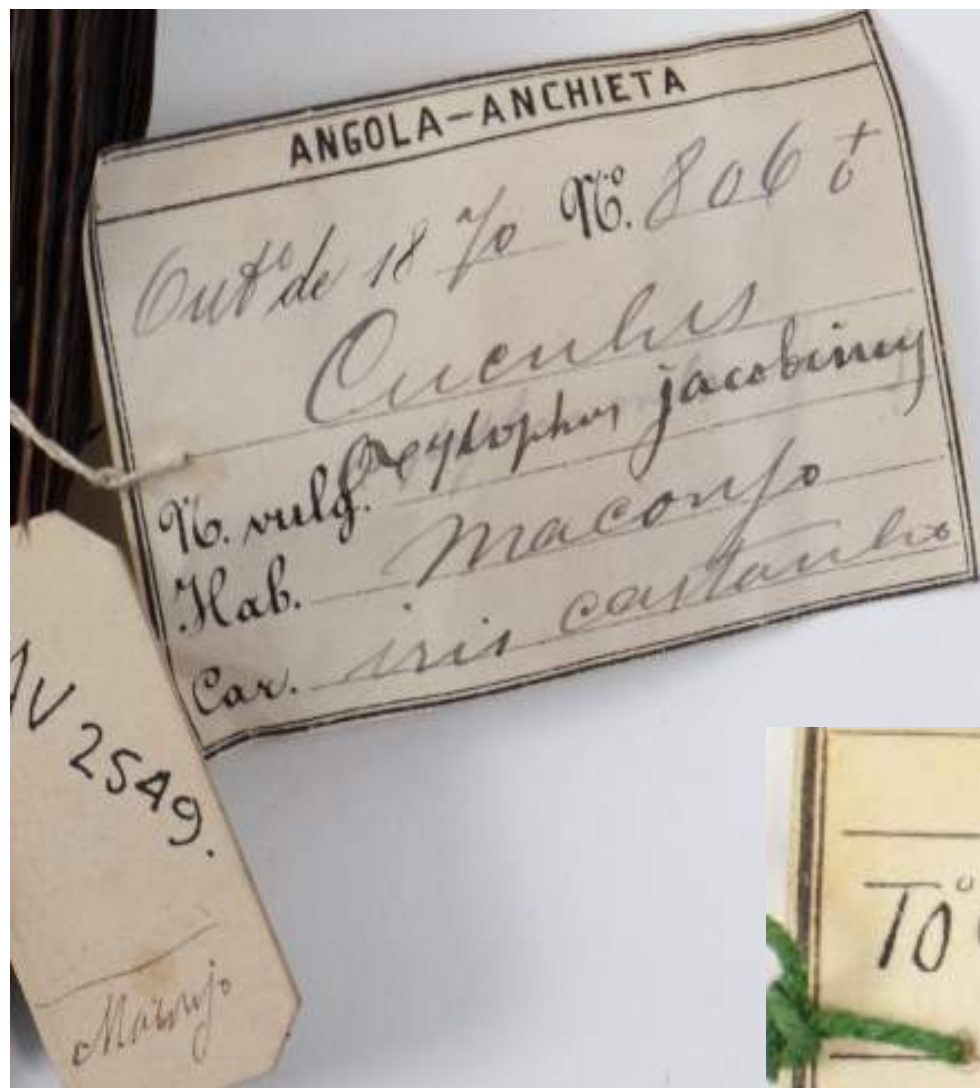 ANGOLA-ANCHIETA
Outº de 1870 Nº. 806 ♀
Cuculus
N. vulg. Oxylophus jacobinus
Hab. Maconjo
Car. iris castanho
AV 2549.
Maconjo